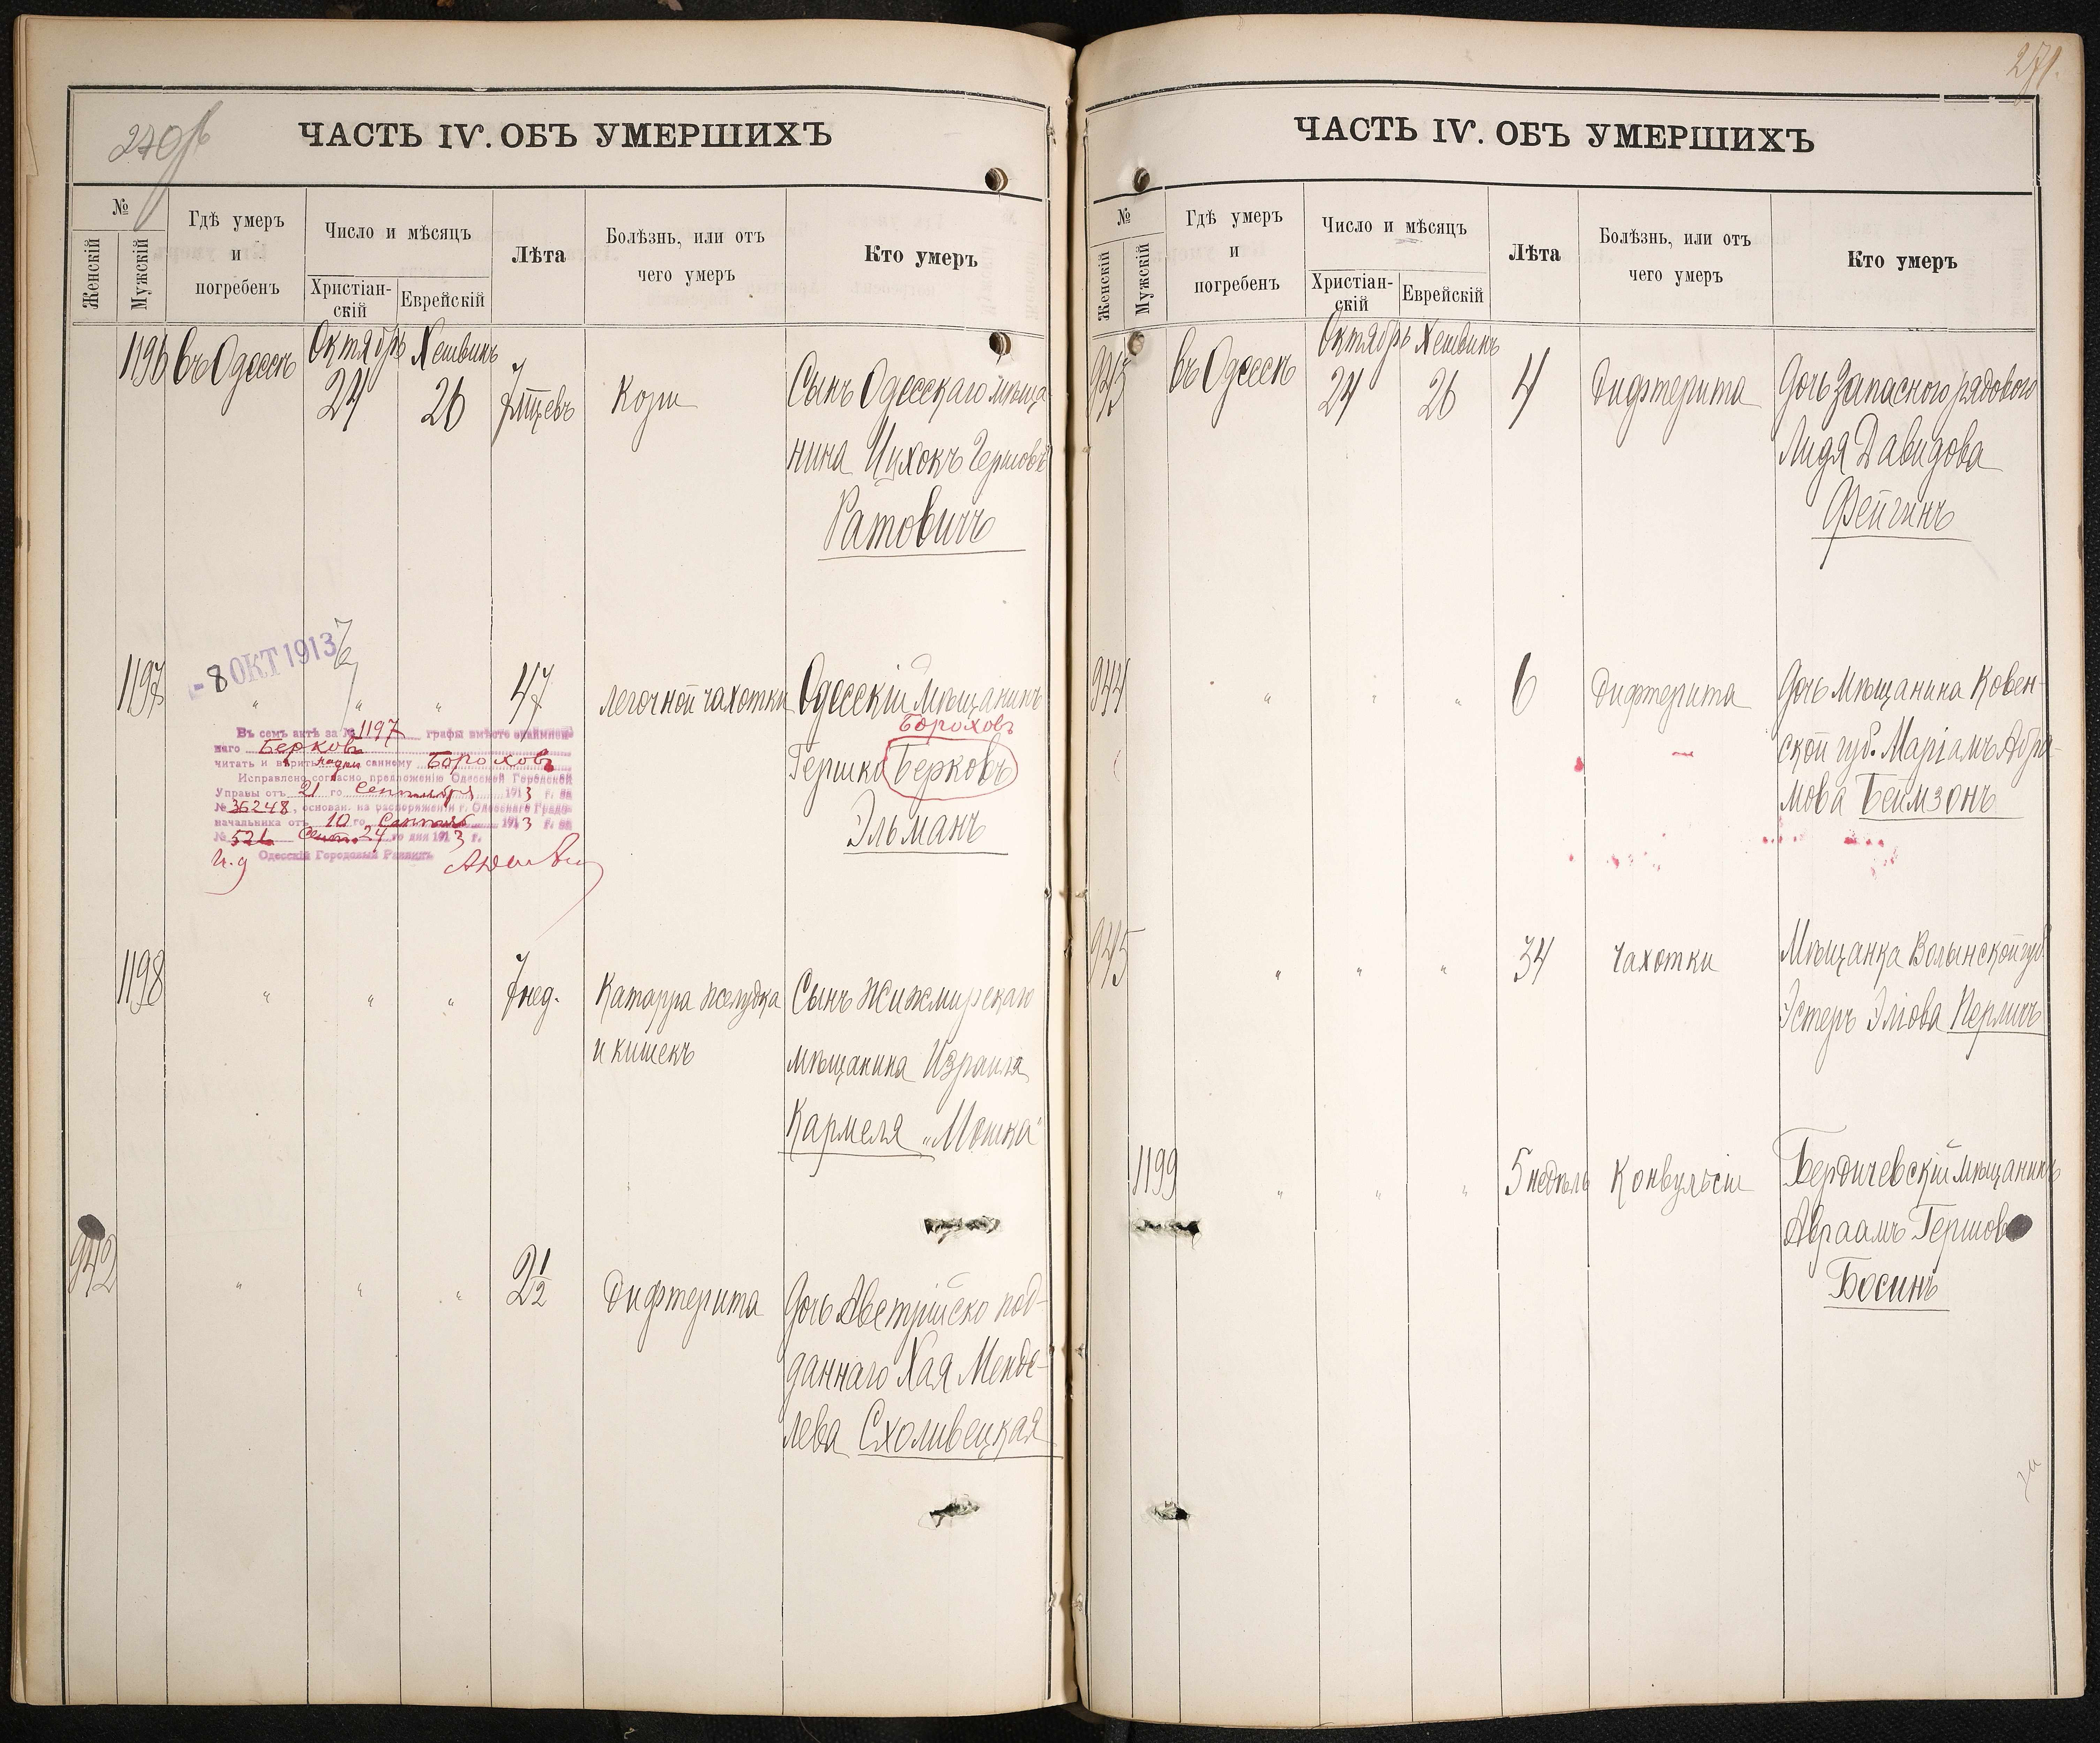 270об
ЧАСТЬ IV. ОБЪ УМЕРШИХЪ
№
Женскій
Мужскій
Гдѣ умеръ
и
погребенъ
Число и мѣсяцъ
Христіан-
скій
Еврейскій
Лѣта
Болѣзнь, или отъ
чего умеръ
Кто умеръ
1196 въ Одессѣ Октябрь 24 Хешвинъ 26 7 мцевъ Кори Сынъ Одесскаго мѣща
нина Ицхокъ Гершовъ
Ратовичъ
- 8 ОКТ 1913
1197 " " " 47 Легочной чахотки Одесскій Мѣщанинъ
Бороховъ
Гершко Берковъ
Эльманъ
Въ семъ актѣ за № 1197 графы вмѣсто
наго Берковъ
читать и вѣрить надписанному Бороховъ
Исправлено согласно предложенію Одесской Городской
Управы отъ 21 го Сентября 1913 г. за
№ 36248, основан. на распоряженіи г. Одесскаго Градо-
начальника отъ 10 го Сентября 1913 г. за
№ 521 Сент. 24 го дня 1913 г.
И.д Одесскій Городовый Раввинъ
1198 " " " 7 нед. Катарра желудка Сынъ Жижмирскаго
и кишекъ мѣщанина Израиля
Кармеля „Мошка"
942 " " " 2 1/2 Дифтерита Дочь Австрійско под-
даннаго Хая Менде-
лева Схоливецкая
271.
ЧАСТЬ IV. ОБЪ УМЕРШИХЪ
№
Женскій
Мужскій
Гдѣ умеръ
и
погребенъ
Число и мѣсяцъ
Христіан-
скій
Еврейскій
Лѣта
Болѣзнь, или отъ
чего умеръ
Кто умеръ
943 въ Одессѣ Октябрь 24 Хешвинъ 26 4 Дифтерита Дочь Запасного рядового
Лидя Давидова
Фейгинъ
944 " " " 6 Дифтерита Дочь Мѣщанина Ковен-
ской губ. Маріамъ Абра-
мова Беимзонъ
945 " " " 34 Чахотки Мѣщанка Волынской губ.
Эстеръ Эліова Перлисъ
1199 " " " 5 недѣль Конвульсіи Бердичевскій мѣщанинъ
Авраамъ Гершов
Босинъ